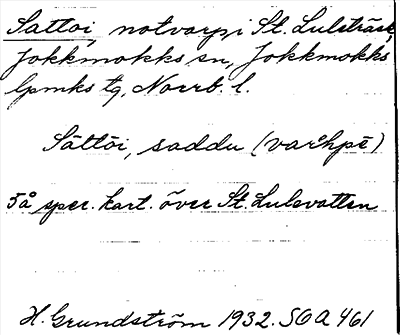 Sattoi, notvarp i St. Luleträsk,
Jokkmokks sn, Jokkmokks
lpmks tg, Norrb. l.
Sáttōi, saddu (varhpē)
Så sper. kart. över St. Lulevatten
H. Grundström 1932. SOA 461